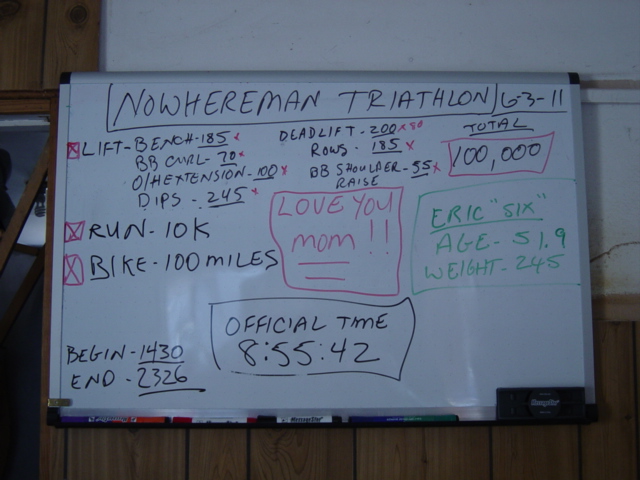 NOWHEREMAN TRIATHLON 6-3-11
LIFT-BENCH-185 x
BB CURL-70 x
O/H EXTENSION-100 x
DIPS - 245 x
DEADLIFT-200 x
ROWS - 185 x
BB SHOULDER-55 x
RAISE
TOTAL
100,000
RUN-10K
BIKE-100 MILES
LOVE YOU
MOM!!
ERIC "SIX"
AGE-51.9
WEIGHT-245
OFFICIAL TIME
8:55:42
BEGIN-1430
END-2326